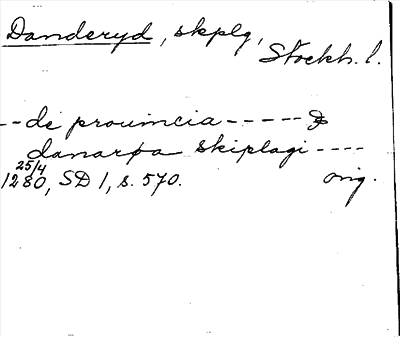 Danderyd, skplg,
Stockh. l.
-- de prouincia -----
danarþa skiplagi ----
25/4
1280, SD 1, s. 570. orig.